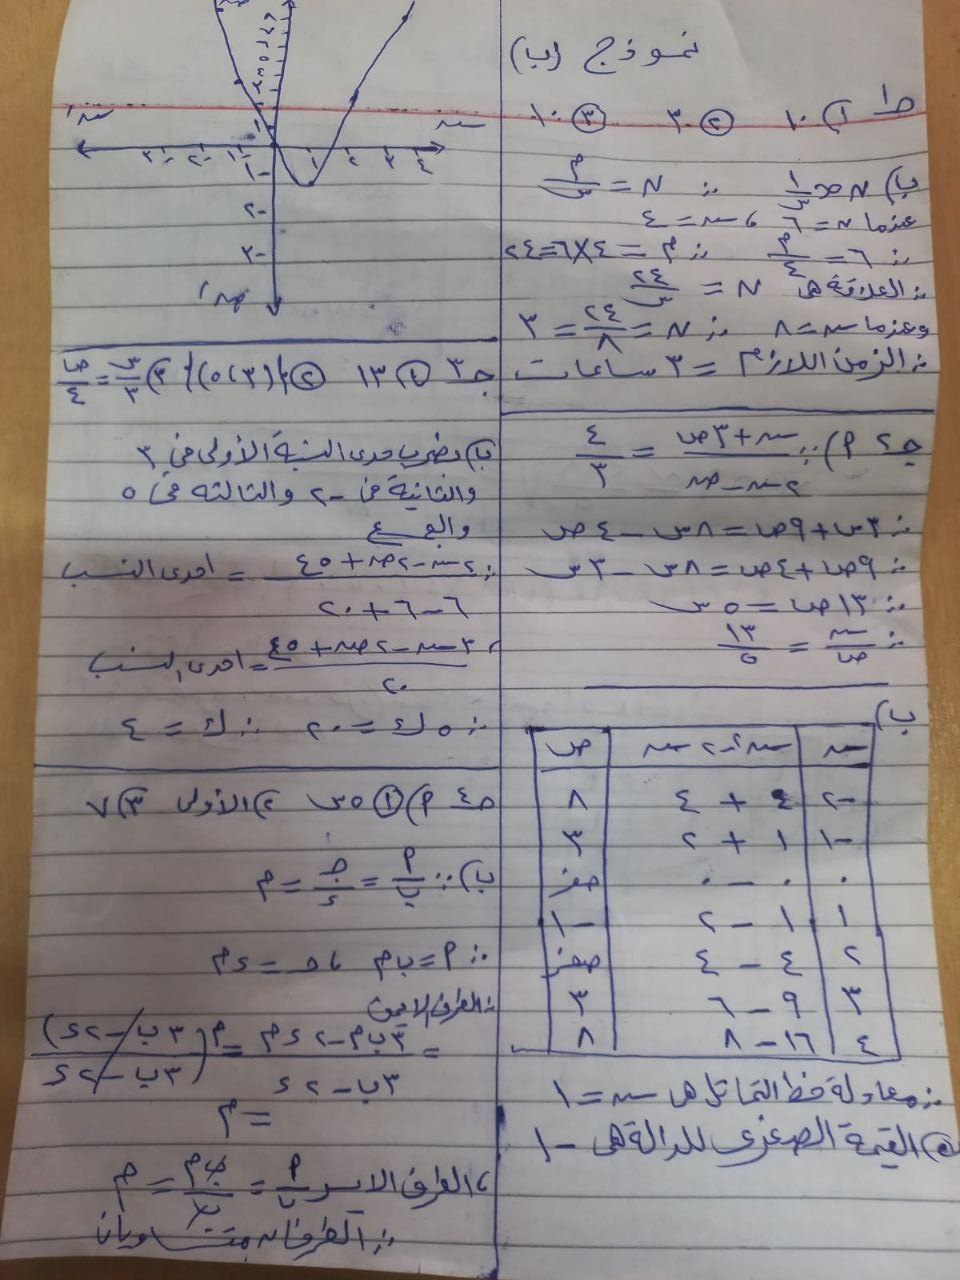 نموذج (ب)
ج١ ١) ١٠ ② -٣ ③ ١٠
ب) ن ∝ ١/س ∴ ن = م/س
عندما ن = ٦ ، س = ٤
∴ ٦ = م/٤ ∴ م = ٤×٦ = ٢٤
∴ العلاقة هى ن = ٢٤/س
وعندما س = ٨ ∴ ن = ٢٤/٨ = ٣
∴ الزمن اللازم = ٣ ساعات
ج٢ م) ∵ س+٣ص/٢س-ص = ٤/٣
∴ ٣س+٩ص = ٨س - ٤ص
∴ ٩ص+٤ص = ٨س - ٣س
∴ ١٣ص = ٥س
∴ س/ص = ١٣/٥
ب)
س س٢-٢س ص
-٢ ٤ + ٤ ٨
-١ ١ + ٢ ٣
٠ ٠ - ٠ صفر
١ ١ - ٢ -١
٢ ٤ - ٤ صفر
٣ ٩ - ٦ ٣
٤ ١٦ - ٨ ٨
∴ معادلة خط التماثل هى س = ١
القيمة الصغرى للدالة هى -١
س س،
١ ٢ ٣ ٤
-١ -٢ -٣
-١
-٢
-٣
ص،
ج٣ ① ١٣ ② {(٥،٣)} ③ س/٣ = ص/٤
ب) بضرب حدى النسبة الأولى فى ٣
والثانية فى -٢ والثالثة فى ٥
والجمع
∴ ٣س-٢ص+٥ع/٦-٦+٢٠ = احدى النسب
، ٣س-٢ص+٥ع/٢٠ = احدى النسب
∴ ٥ك = ٢٠ ∴ ك = ٤
ج٤ م) ① ٥س ② الأولى ③ ٧
ب) ∵ م/ب = ج/د = م
∴ م = ب م ، ج = د م
∴ الطرف الايمن
= ٣ب م-٢د م/٣ب-٢د = م(٣ب-٢د)/٣ب-٢د
= م
، الطرف الايسر م/ب = ب م/ب = م
∴ الطرفان متساويان